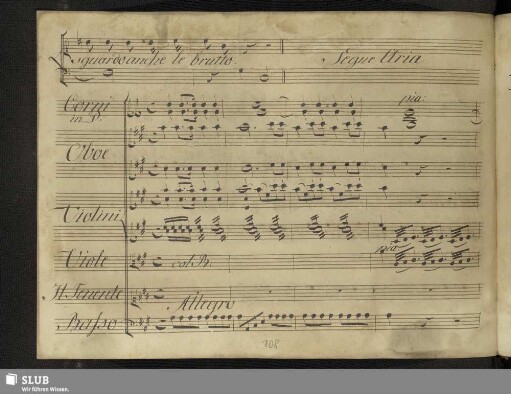 sguardo anche le brutto. Segue Aria
Corni
in D.
pia:
Oboe
Violini
pia
Viole
col B.
Il Tenente
Allegro
Basso
108
SLUB
Wir führen Wissen.